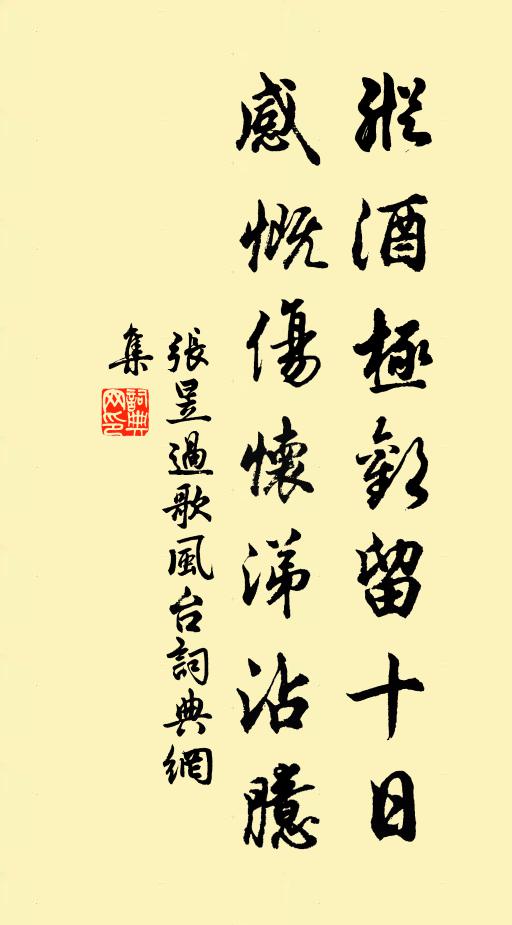 縱酒極歡留十日
感慨傷懷涕沾臆
張昱過歌風台詞典網
集
詞典網印